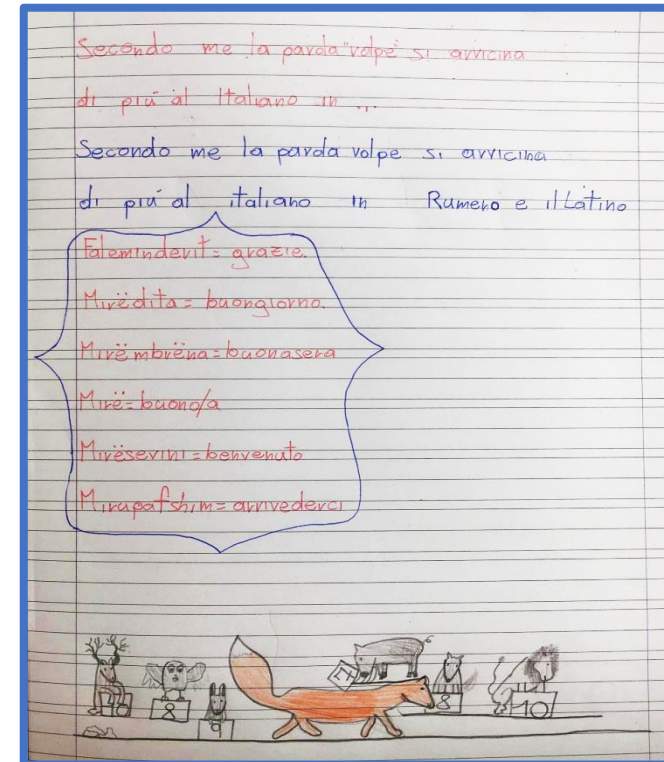 Secondo me la parola "volpe" si avvicina
di piú al Italiano in ...
Secondo me la parola volpe si avvicina
di piú al italiano in Rumeno e il Latino
Faleminderit = grazie.
Mirëdita = buongiorno.
Mirëmbrëna = buonasera
Mirë = buono/a
Mirësevini = benvenuto
Mirupafshim = arrivederci
10 8 9 8 10